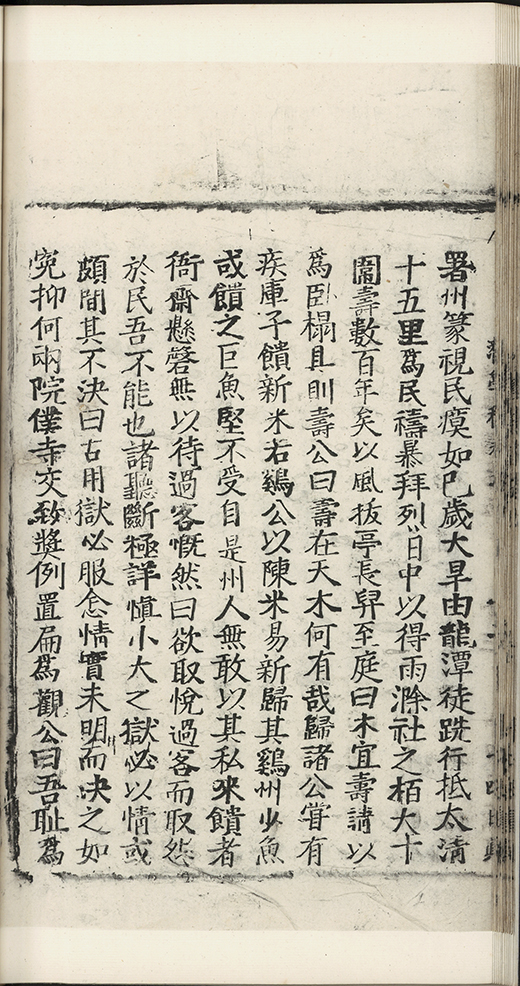 署州篆視民瘼如己歲大旱由龍潭徒跣行抵太清
十五里為民禱暴拜烈日中以得雨滁社之栢大十
圍壽數百年矣以風拔亭長舁至庭曰木宜壽請以
為臥榻具則壽公曰壽在天木何有哉歸諸公嘗有
疾庫子饋新米若鷄公以陳米易新歸其鷄州少魚
或饋之巨魚堅不受自是州人無敢以其私來饋者
衙齋懸磬無以待過客慨然曰欲取悅過客而取怨
於民吾不能也諸聽斷極詳慎小大之獄必以情或
頗間其不決曰古用獄必服念情實未明而決之如
冤抑何兩院僕寺交致獎例置扁為觀公曰吾恥為